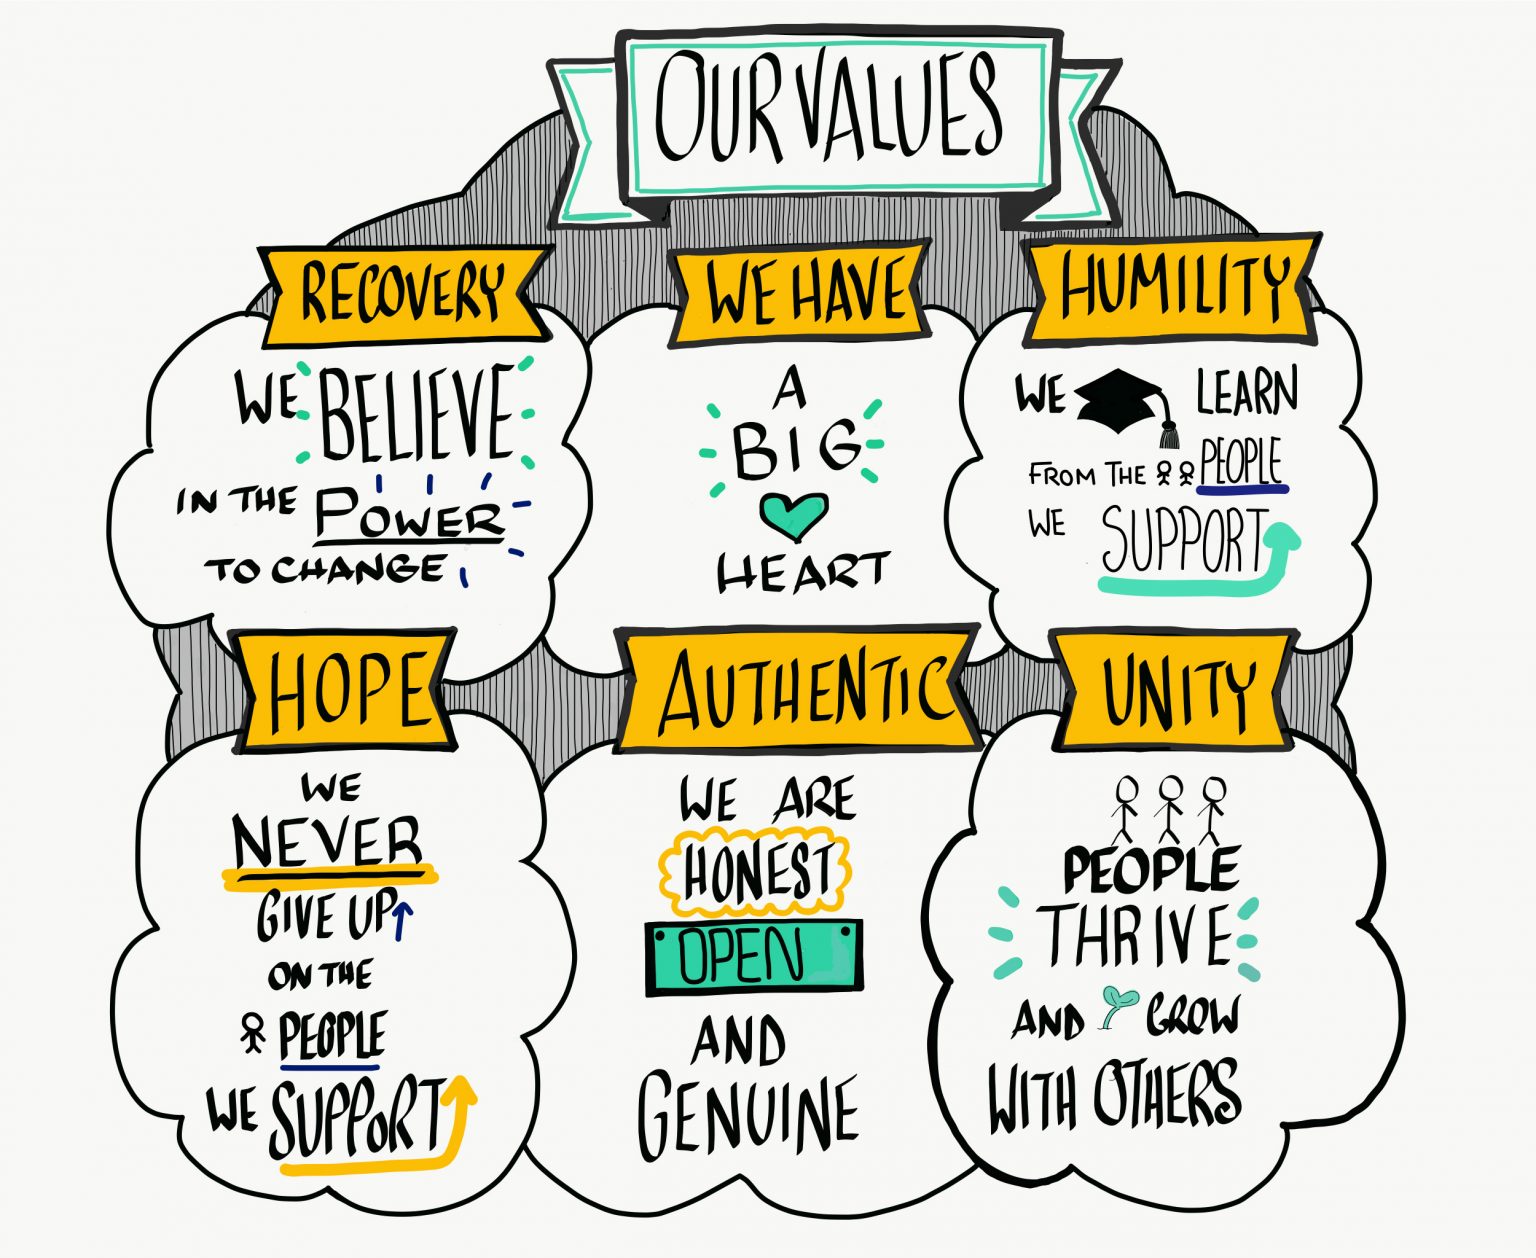 OUR VALUES
RECOVERY
WE BELIEVE
IN THE POWER
TO CHANGE
WE HAVE
A
BIG
HEART
HUMILITY
WE LEARN
FROM THE PEOPLE
WE SUPPORT
HOPE
WE
NEVER
GIVE UP
ON THE
PEOPLE
WE SUPPORT
AUTHENTIC
WE ARE
HONEST
OPEN
AND
GENUINE
UNITY
PEOPLE
THRIVE
AND GROW
WITH OTHERS